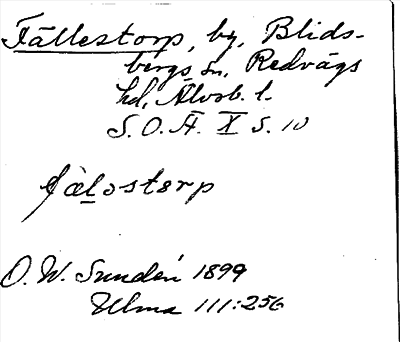 Fällestorp, by, Blids-
bergs sn, Redvägs
hd, Älvsb. l.
S.O.Ä. X s. 10
fälostorp
O. W. Sundén 1899
Ulma 111:256